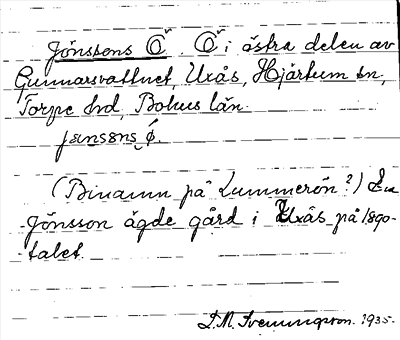 Jönssons Ö. Ö i östra delen av
Gunnarsvattnet, Uxås, Hjärtum sn,
Torpe hd, Bohus län.
jɵnsɵns ǿ.
(Binamn på Lummerön?) En
Jönsson ägde gård i Uxås på 1890-
talet.
D.M. Svenningson. 1935.